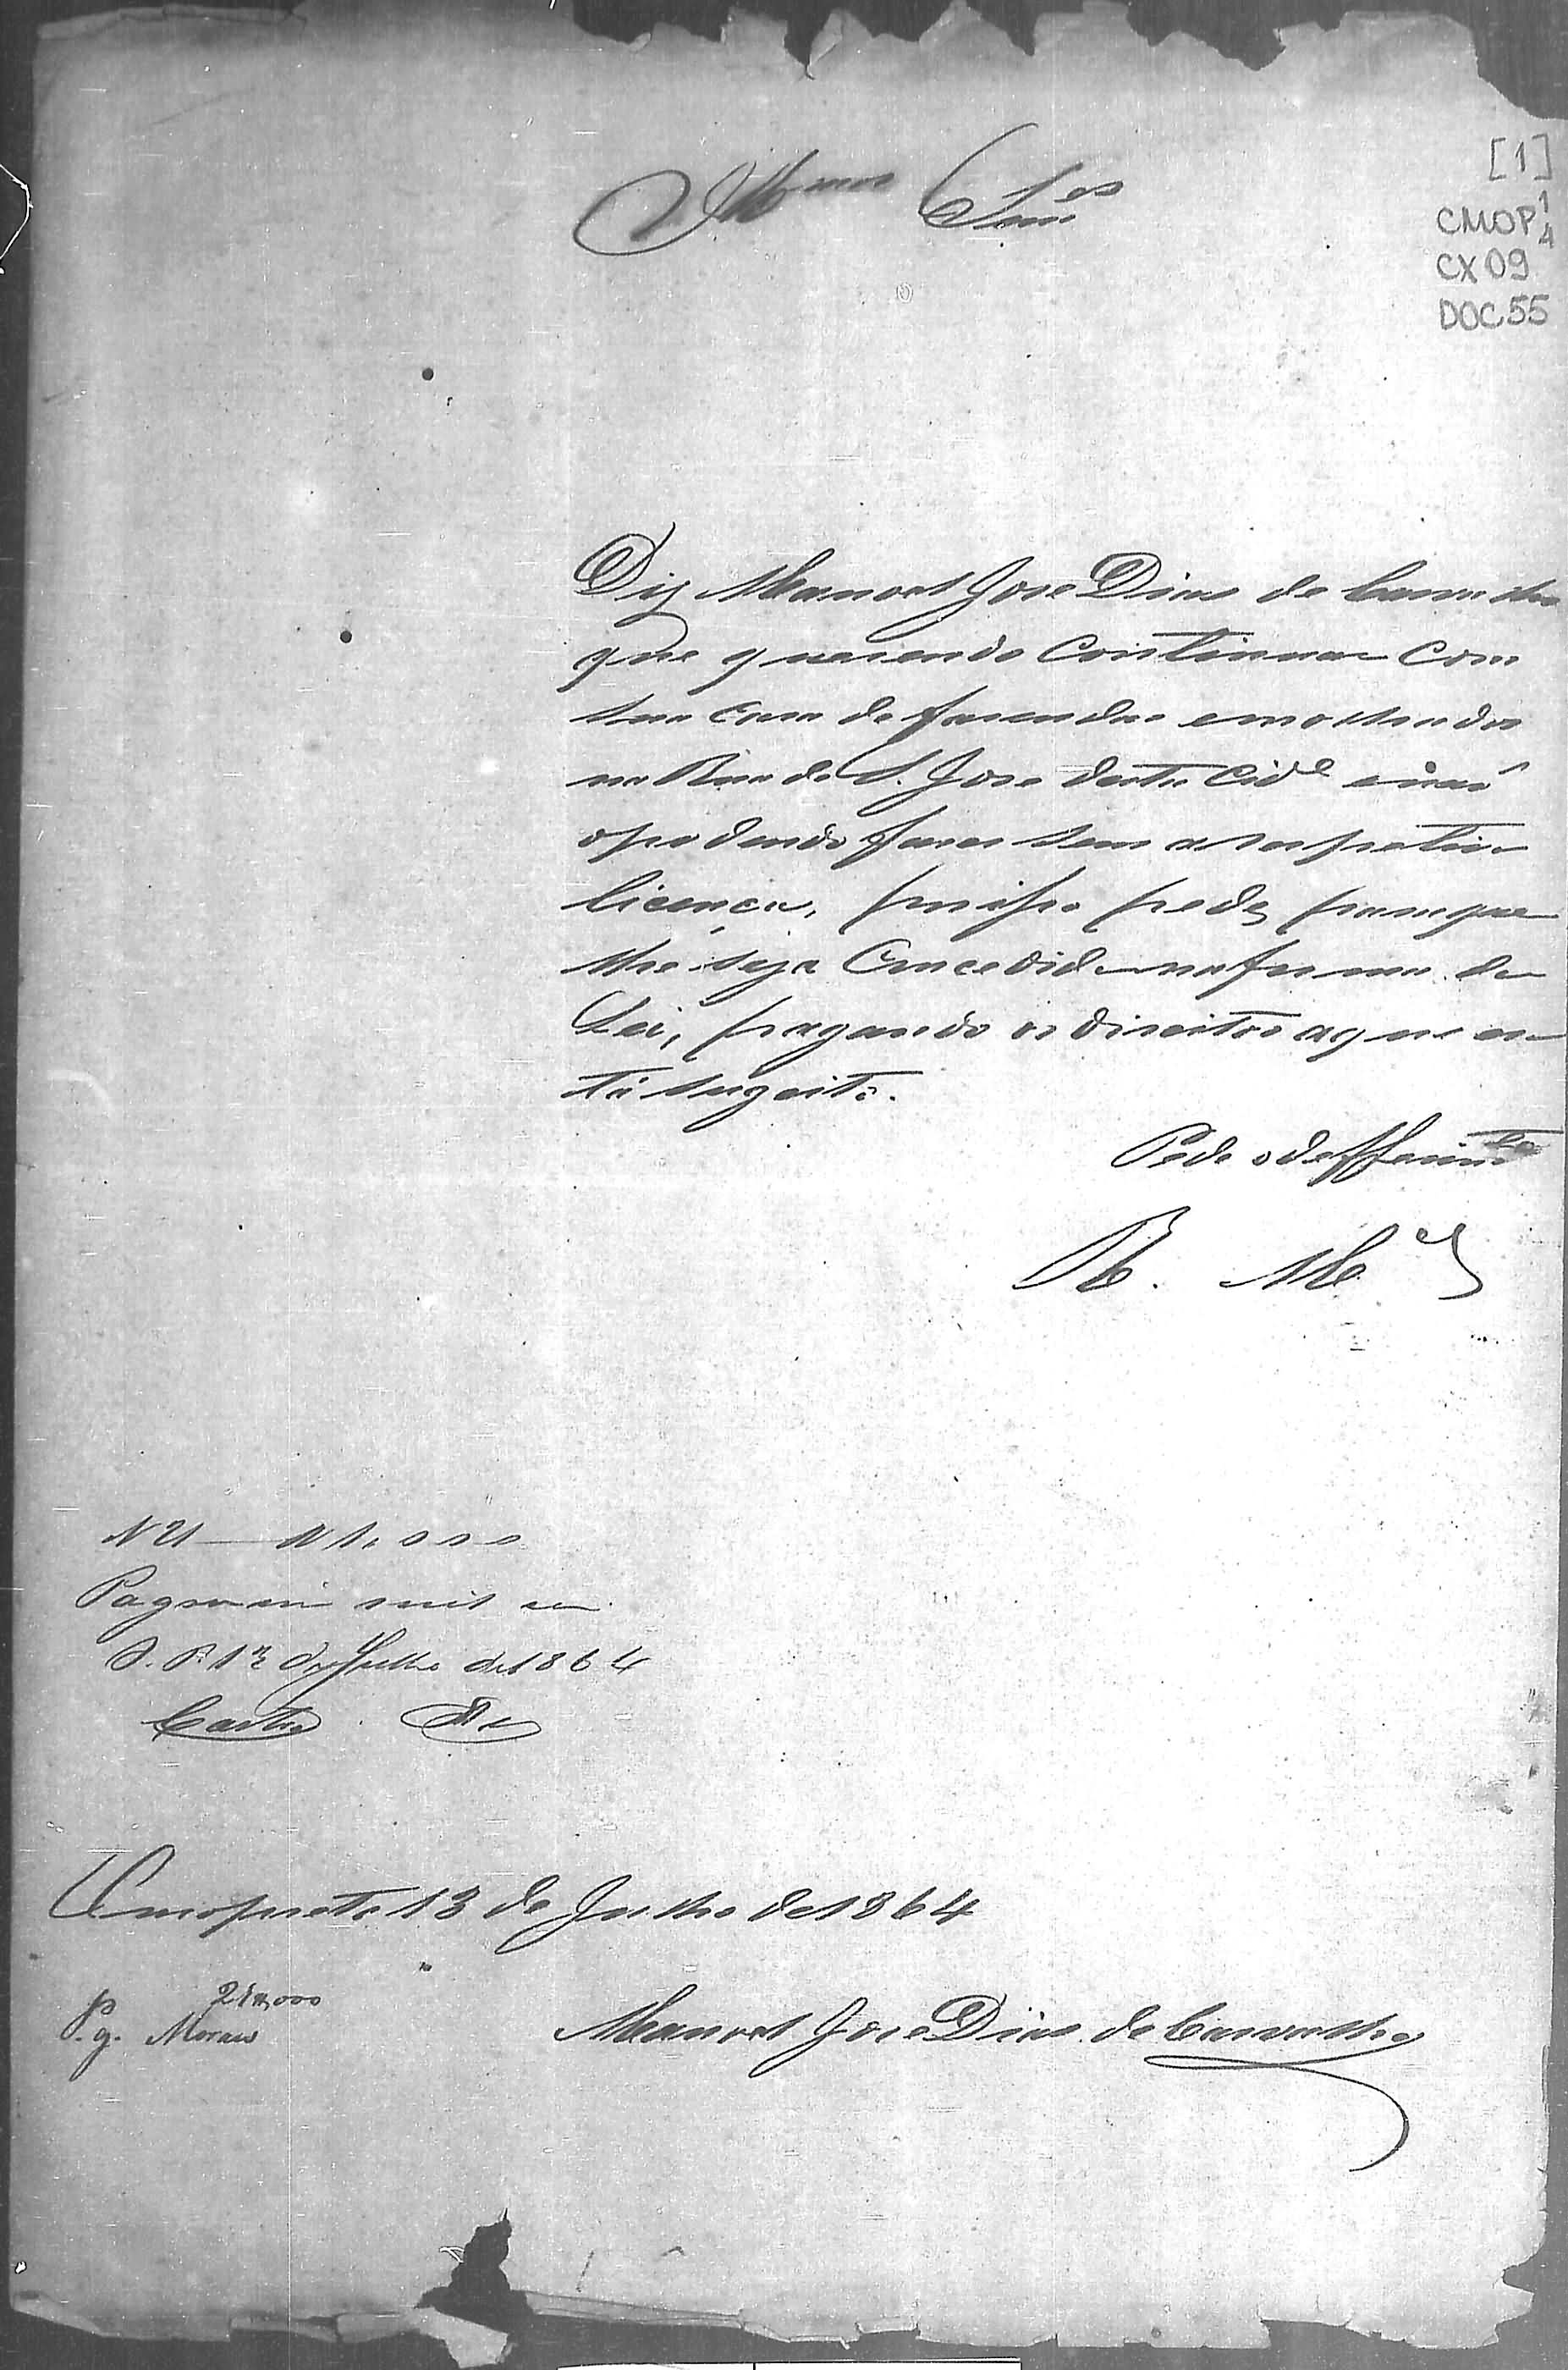 [1]
CMOP 1/4
CX 09
DOC 55
Ill.mos Snr.es
Diz Manoel Jose Dias de Carvalho
que querendo Continuar com
sua Casa de fasendas e molhados
na Rua de S. Jose desta Cid.e e não
o podendo faser sem a respetiva
licença, por isso pede, para que
lhe seja Concedida na forma da
Lei, pagando os direitos a que es-
tá sugeito.
Pede o defferim.to
E. R. M.ce
N 21
Pagou mil
O. P. 12 de Julho de 1864
Castro
Ouropreto 13 de Julho de 1864
P. g. Moraes
Manoel Jose Dias de Carvalho